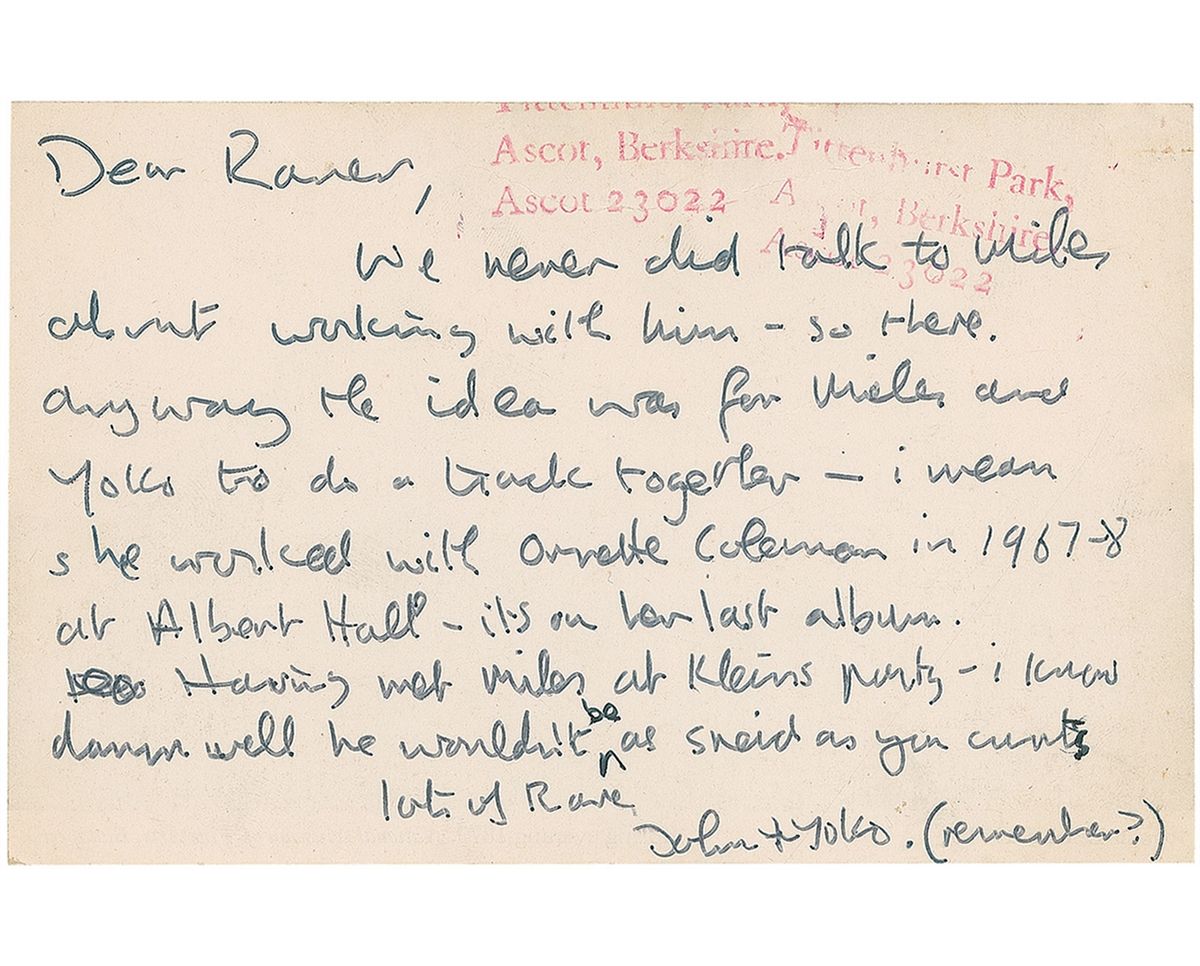 Tittenhurst Park,
Ascot, Berkshire.
Ascot 23022
Tittenhurst Park,
Ascot, Berkshire
Ascot 23022
Dear Raver,
We never did talk to Miles
about working with him - so there.
anyway the idea was for Miles and
Yoko to do a track together - i mean
she worked with Ornette Coleman in 1967-8
at Albert Hall - it's on her last album.
Having met Miles at Kleins party - i know
damn well he wouldn't be as sneid as you cunts
lots of Rave
John + Yoko. (remember?)